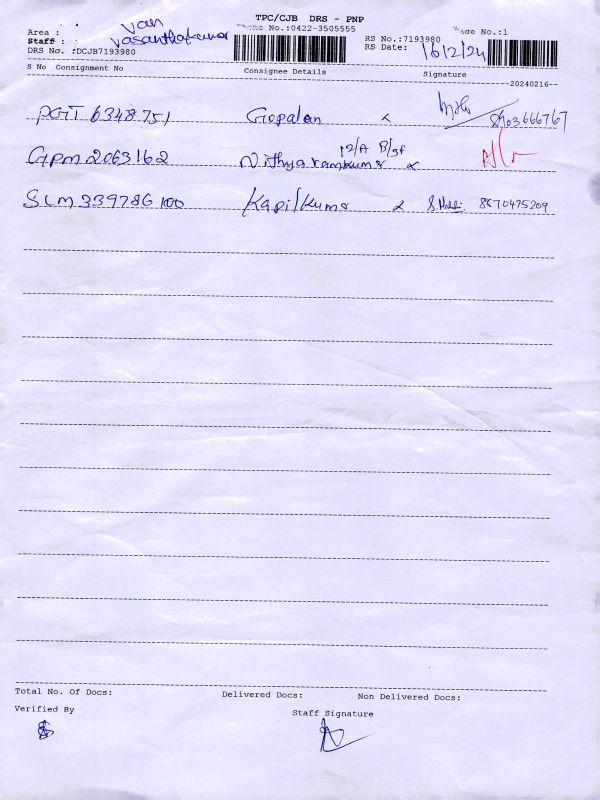 TPC/CJB DRS - PNP
Phone No.:0422-3505555
Page No.:1
Area : Van
Staff : Vasanthakumar
DRS No. :DCJB7193980
RS No.:7193980
RS Date: 16/2/24
S No Consignment No Consignee Details Signature
20240216
PGT 6348751 Gopalan x 8903666767
GPM 2063162 Nithyaramkumar 12/A B/gf x
SLM 339786100 Kapilkumar x 8870475209
Total No. Of Docs: Delivered Docs: Non Delivered Docs:
Verified By
Staff Signature